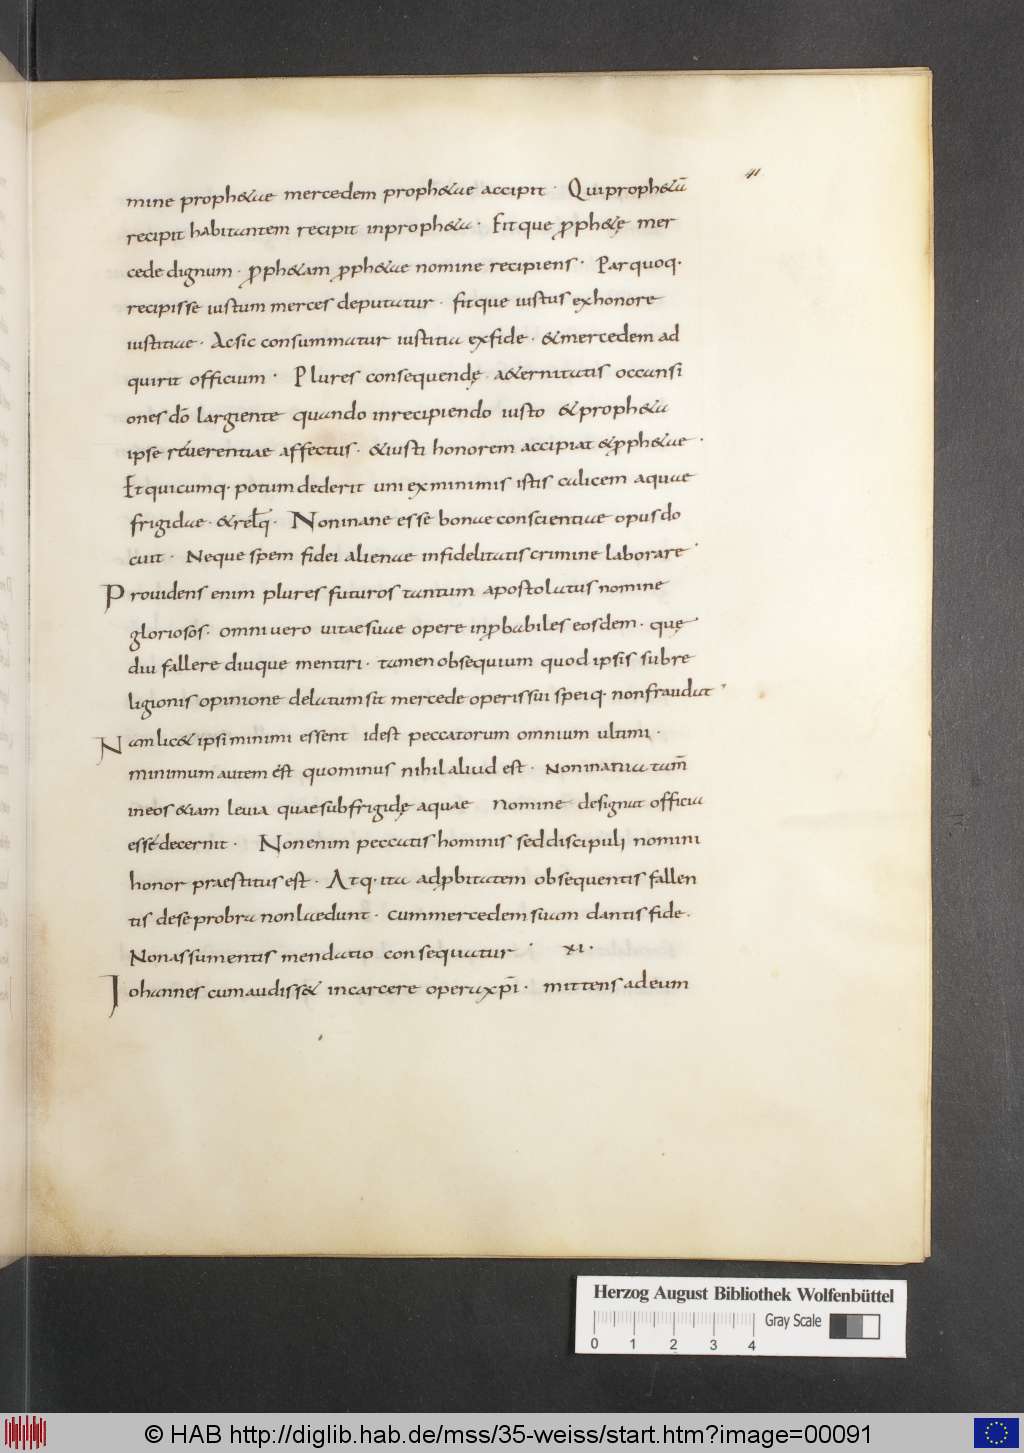 41
mine proph&ae mercedem proph&ae accipit · Qui proph&ā
recipit habitantem recipit inproph&a · Fitque p̱ph&ę mer
cede dignum · p̱ph&am p̱ph&ae nomine recipiens · Par quoq·
recipisse iustum merces deputatur · fitque iustus exhonore
iustitiae · Acsic consummatur iustitia exfide · &mercedem ad
quirit officium · Plures consequendę a&ernitatis occansi
ones dō largiente quando inrecipiendo iusto & proph&a
ipse reverentiae affectus · &iusti honorem accipiat &p̱ph&ae ·
Et quicumq· potum dederit uni ex minimis istis calicem aquae
frigidae · &relq̄ · Non inane esse bonae conscientiae opus do
cuit · Neque spem fidei alienae infidelitatis crimine laborare
Providens enim plures futuros tantum apostolatus nomine
gloriosos · omni vero vitae suae opere inp̱babiles eosdem · quę
diu fallere diuque mentiri · tamen obsequium quod ipsis sub re
ligionis opinione delatum sit mercede operis sui speiq· non fraudat
Nam lic& ipsi minimi essent idest peccatorum omnium ultimi ·
minimum autem est quominus nihil aliud est · Non inania tam̄
in eos &iam levia quae sub frigidę aquae nomine designat officia
esse decernit · Non enim peccatis hominis sed discipuli nomini
honor praestitus est · Atq· ita ad p̱bitatem obsequentis fallen
tis dese probra non laedunt · cum mercedem suam dantis fide ·
Non assumentis mendatio consequatur · XI ·
Iohannes cum audiss& in carcere opera xp̄i · mittens ad eum
Herzog August Bibliothek Wolfenbüttel
Gray Scale
0 1 2 3 4
© HAB http://diglib.hab.de/mss/35-weiss/start.htm?image=00091